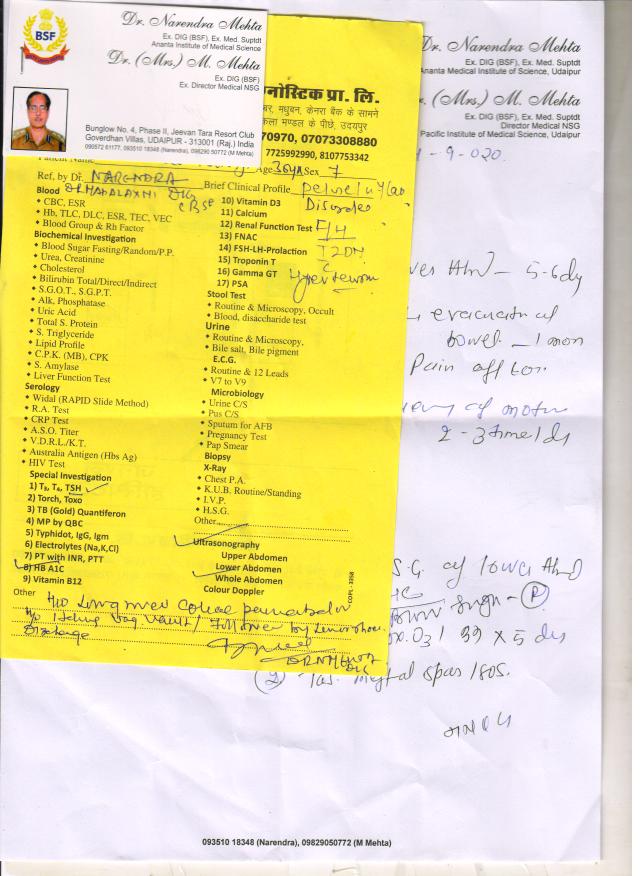 BSF
Dr. Narendra Mehta
Ex. DIG (BSF), Ex. Med. Suptdt
Ananta Institute of Medical Science
Dr. (Mrs.) M. Mehta
Ex. DIG (BSF)
Ex. Director Medical NSG
Bunglow No. 4, Phase II, Jeevan Tara Resort Club
Goverdhan Villas, UDAIPUR - 313001 (Raj.) India
090572 61177, 093510 18348 (Narendra), 098290 50772 (M Mehta)
Dr. Narendra Mehta
Ex. DIG (BSF), Ex. Med. Suptdt
Ananta Medical Institute of Science, Udaipur
(Mrs.) M. Mehta
Ex. DIG (BSF)
Director Medical NSG
Pacific Institute of Medical Science, Udaipur
-9-020
नोस्टिक प्रा. लि.
मधुबन, केनरा बैंक के सामने
कला मण्डल के पीछे, उदयपुर
70970, 07073308880
7725992990, 8107753342
Age 36yr Sex F
Ref, by Dr. NARENDRA
Brief Clinical Profile
Disorder
Blood
CBC, ESR
Hb, TLC, DLC, ESR, TEC, VEC
Blood Group & Rh Factor
Biochemical Investigation
Blood Sugar Fasting/Random/P.P.
Urea, Creatinine
Cholesterol
Bilirubin Total/Direct/Indirect
S.G.O.T., S.G.P.T.
Alk, Phosphatase
Uric Acid
Total S. Protein
S. Triglyceride
Lipid Profile
C.P.K. (MB), CPK
S. Amylase
Liver Function Test
Serology
Widal (RAPID Slide Method)
R.A. Test
CRP Test
A.S.O. Titer
V.D.R.L./K.T.
Australia Antigen (Hbs Ag)
HIV Test
Special Investigation
1) T3, T4, TSH
2) Torch, Toxo
3) TB (Gold) Quantiferon
4) MP by QBC
5) Typhidot, IgG, Igm
6) Electrolytes (Na,K,Cl)
7) PT with INR, PTT
8) HB A1C
9) Vitamin B12
10) Vitamin D3
11) Calcium
12) Renal Function Test
13) FNAC
14) FSH-LH-Prolaction
15) Troponin T
16) Gamma GT
17) PSA
F/H
T2DM
Hypertension
Stool Test
Routine & Microscopy, Occult
Blood, disaccharide test
Urine
Routine & Microscopy,
Bile salt, Bile pigment
E.C.G.
Routine & 12 Leads
V7 to V9
Microbiology
Urine C/S
Pus C/S
Sputum for AFB
Pregnancy Test
Pap Smear
Biopsy
X-Ray
Chest P.A.
K.U.B. Routine/Standing
I.V.P.
H.S.G.
Other
Ultrasonography
Upper Abdomen
Lower Abdomen
Whole Abdomen
Colour Doppler
Other
Discharge
COPL - 3358
5-6 dy
evacuation of
bowel - 1 mon
Pain after
of motion
2-3 time/dy
S.G. of lower Abd
x 5 dy
093510 18348 (Narendra), 09829050772 (M Mehta)